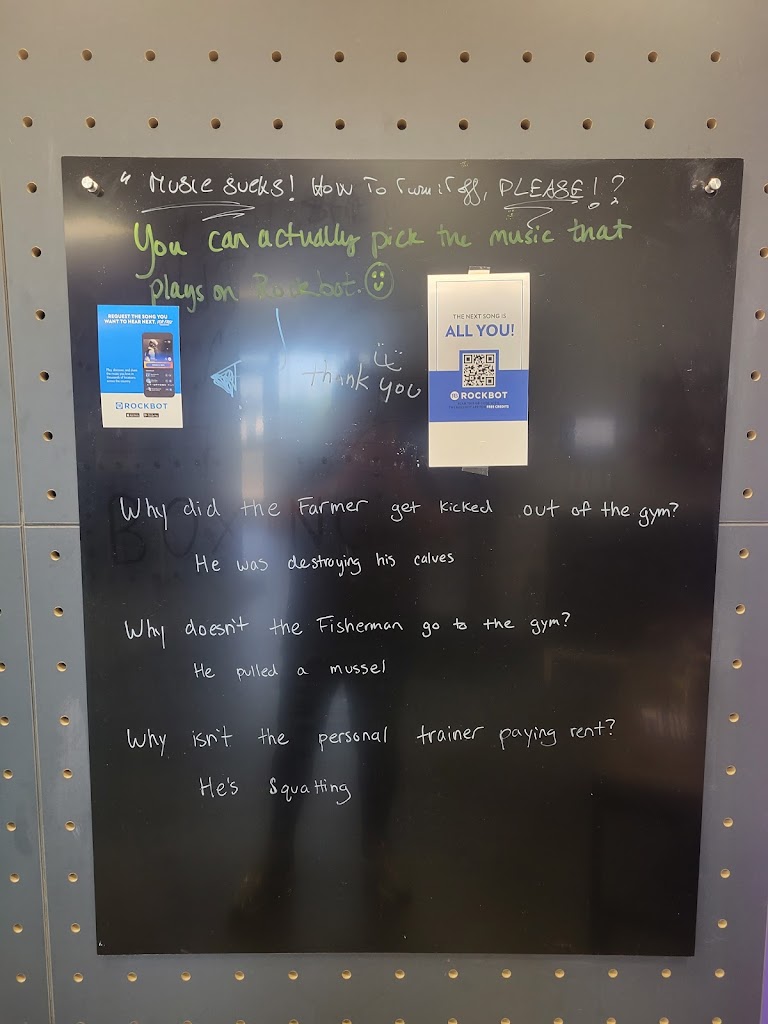 " Music sucks! How To Turn it off, PLEASE!?
You can actually pick the music that
plays on Rockbot.
REQUEST THE SONG YOU
WANT TO HEAR NEXT.
ROCKBOT
thank you
THE NEXT SONG IS
ALL YOU!
ROCKBOT
FREE CREDITS
BOXING
Why did the Farmer get kicked out of the gym?
He was destroying his calves
Why doesn't the Fisherman go to the gym?
He pulled a mussel
Why isn't the personal trainer paying rent?
He's Squatting